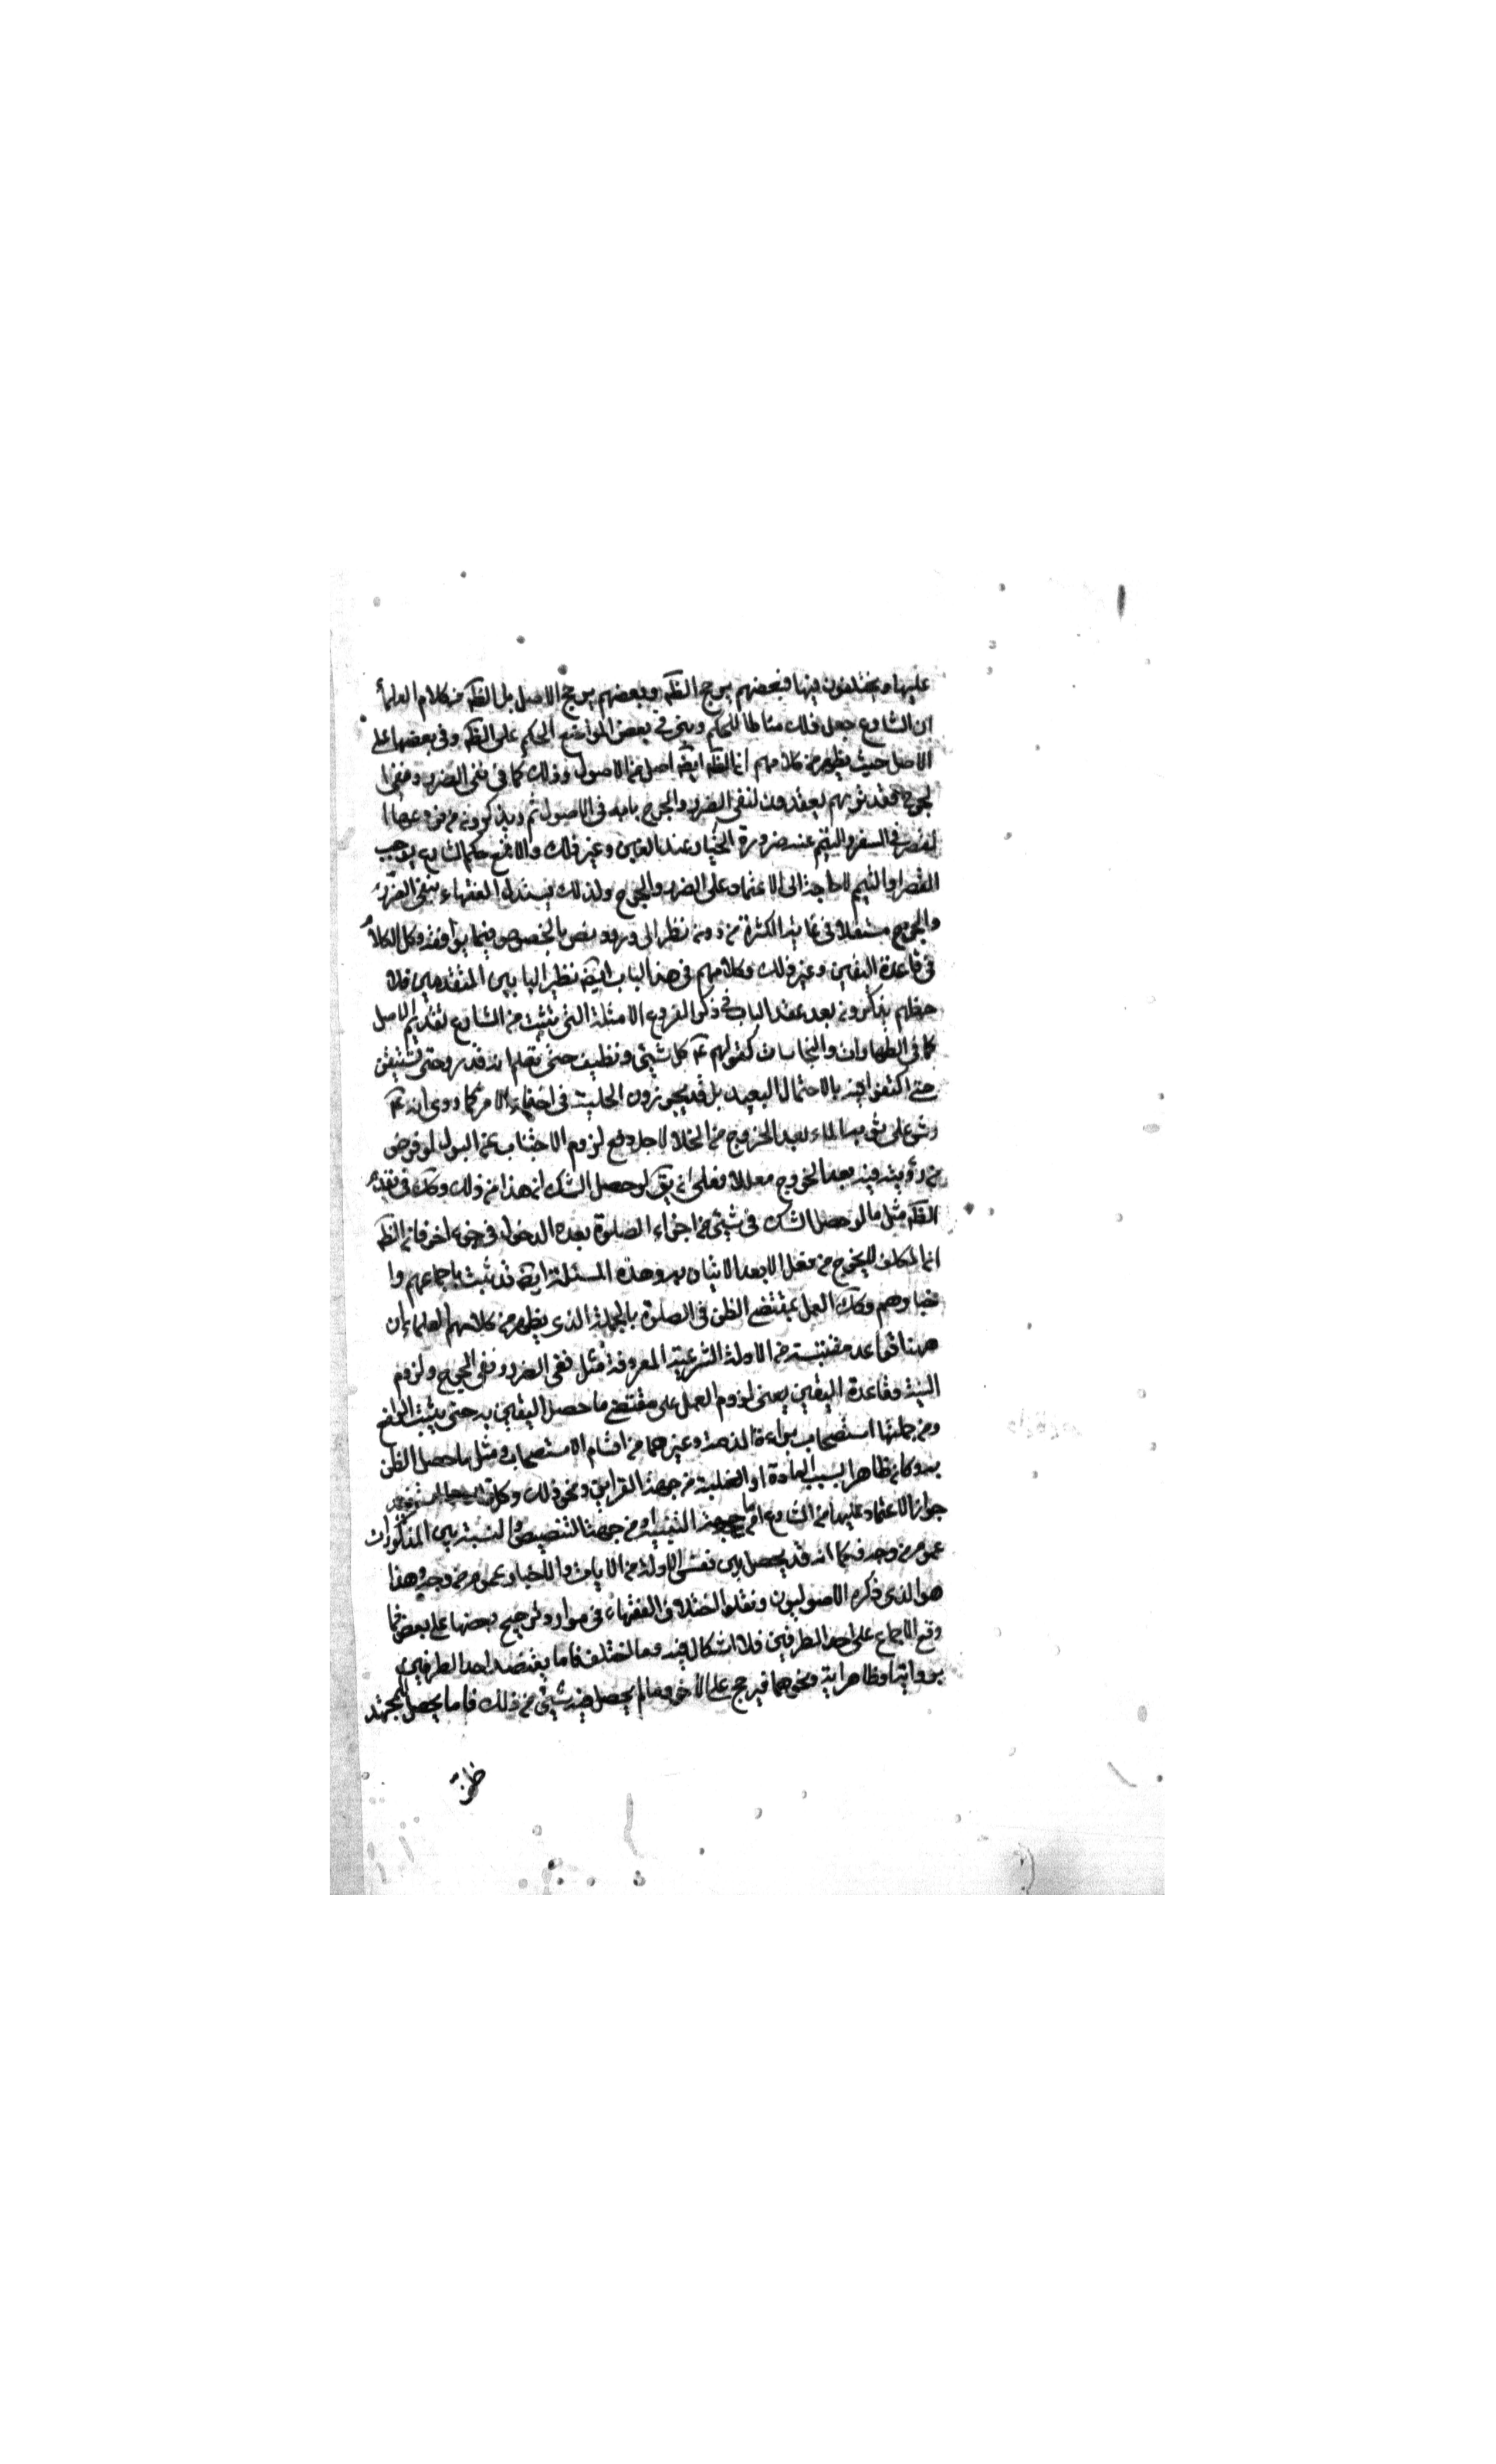 عليها ويختلفون فيها فبعضهم يرجح الظ‍ه وبعضهم يرجح الاصل بل الظ‍ه من كلام العلمأ
ان الشارع جعل ذلك مناطا للحكم في بعض المواضع الحكم على الظ‍ه وفي بعضها على
الاصل حيث يظهر من كلامهم ان الظ‍ه ايض‍ه اصل من الاصول وذلك كما في نفي الضرر ونفي ا
لحرج فقد تريهم يعقدون لنفي الضرر والحرج بابه في الاصول ثم يذكرون من فروعها ا
لقصر في السفر والتيمم عند ضرورة الخيار عند الغبن وغير ذلك والا فمع حكم الشارع بوجوب
القصر او التيمم لا حاجة الى الاعتماد على الضرر والحرج ولذلك يستدل الفقهاء بنفي الضرر
والحرج مستقلا في غاية الكثرة من دون نظر الى ورود نص بالخصوص فيما يوافقه وكل الكلام
في قاعدة اليقين وغير ذلك وكلامهم في هذا الباب ايض‍ه نظير البابين المتقدمين فلا
حظهم يذكرون بعد عقد الباب في ذكر الفروع الامثلة التي يثبت من الشارع تقديم الاصل
كما في الطهارات والنجاسات كقولهم ع‍ه كل شيئ نظيف حتى تعلم انه قذر وحتى تستيقن
حتى اكتفوا فيه بالاحتمال البعيد بل قد يجوزون الحلية في اخفاء الامر كما روى انه ع‍ه
رش على ثوبه الماء بعد الخروج من الخلا لاجل دفع لزوم الاجتناب عن البول لو فرض
من رؤيته فيه بعد الخروج معللا فعلى ان يق‍ه لو حصل الشك ان هذا من ذلك وكك في تقديم
الظ‍ه مثل ما لو حصل الشك في شيئ من اجزاء الصلوة بعده الدخول في جزء اخر فان الظ‍ه
ان المكلف لا يخرج من فعل الا بعد الاتيان به وهذه المسئلة ايض‍ه قد ثبت باجماعهم وا
خبارهم وكك العمل بمقتضى الظن في الصلوة بالجملة الذي يظهر من كلامهم العلماء ان
ههنا قواعد مقتبسة من الادلة الشرعية المعروفة مثل نفي الضرر ونفي الحرج ولزوم
البينة وقاعدة اليقين يعني لزوم العمل على مقتضى ما حصل اليقين به حتى يثبت الرافع
ومن جملتها استصحاب براءة الذمة وغيرهما من اقسام الاستصحاب ومثل ما حصل الظن
به وكان ظاهرا بسبب العادة او الغلبة من جهة القراين ونحو ذلك وكل
جواز الاعتماد عليها من الشارع اما من جهة التنبيه او من جهة التنصيص والنسبة بين المذكورات
عموم من وجه فكما انه قد يحصل بين نفس الادلة من الايات والاخبار عموم من وجه وهذا
هو الذي ذكره الاصوليون ونقلوا اختلاف الفقهاء في موارد ترجيح بعضها على بعض فما
وقع الاجماع على احد الطرفين فلا اشكال فيه وما اختلف فاما يعتضد احد الطرفين
برواية او ظاهر اية ونحوهما فيرجح على الاخر وما لم يحصل فيه شيئ من ذلك فاما يحصل للمجتهد
ظن